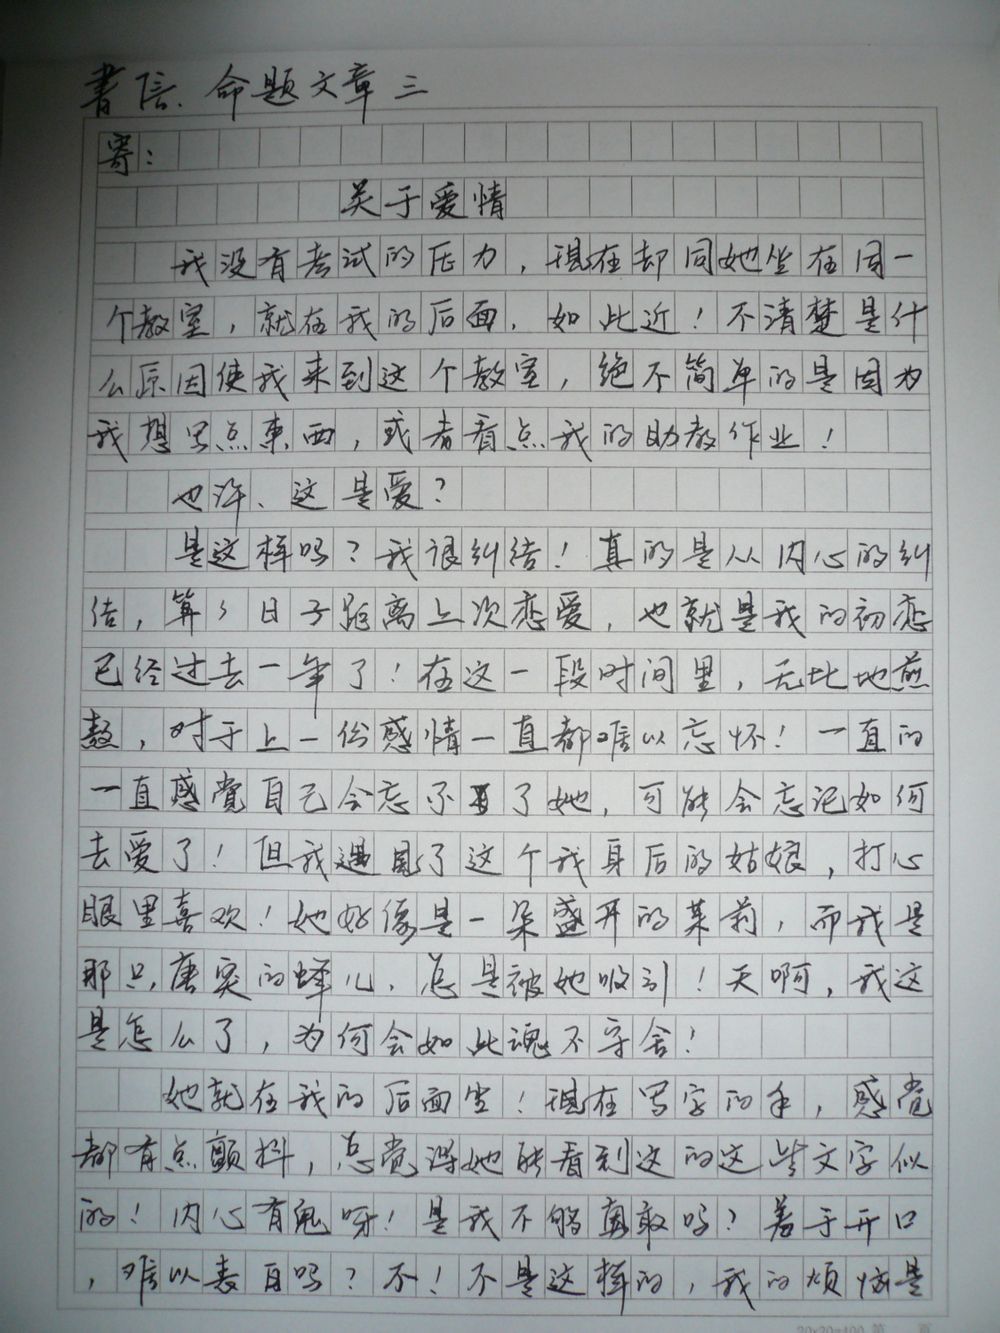 書信、命题文章三
寄：
关于爱情
我没有考试的压力，现在却同她坐在同一
个教室，就在我的后面，如此近！不清楚是什
么原因使我来到这个教室，绝不简单的是因为
我想写点東西，或者看点我的助教作业！
也许、这是爱？
是这样吗？我很纠结！真的是从内心的纠
结，算々日子距离上次恋爱，也就是我的初恋
已经过去一年了！在这一段时间里，无比地煎
熬，对于上一份感情一直都难以忘怀！一直的
一直感覺自己会忘不了她，可能会忘记如何
去爱了！但我遇見了这个我身后的姑娘，打心
眼里喜欢！她好像是一朵盛开的茉莉，而我是
那只唐突的蜂儿、总是被她吸引！天啊，我这
是怎么了，为何会如此魂不守舍！
她就在我的后面坐！现在写字的手，感觉
都有点颤抖，总觉得她能看到这的这些文字似
的！内心有鬼呀！是我不够勇敢吗？羞于开口
，难以表白吗？不！不是这样的，我的烦恼是
20×20=400 第 页